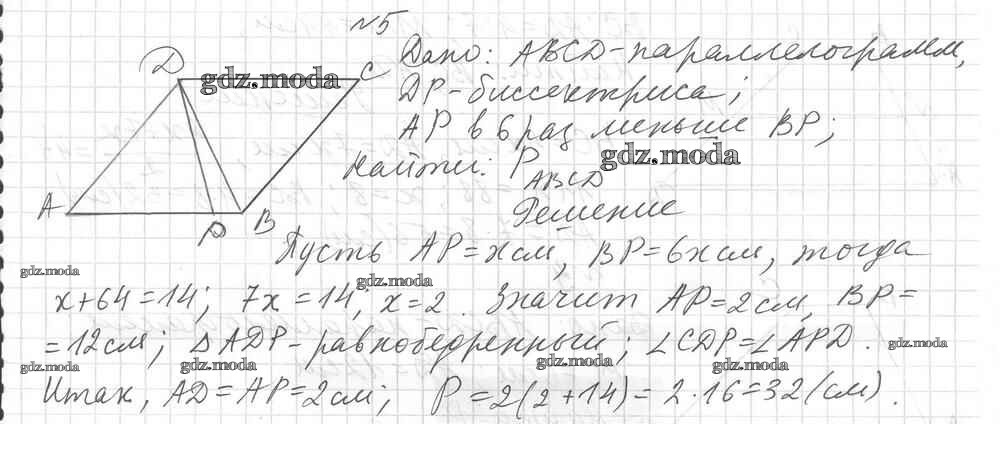 №5
D C
Дано: ABCD-параллелограмм,
DP-биссектриса;
AP в 6 раз меньше BP;
Найти: P ABCD
A P B
Решение
Пусть AP=x см, BP=6x см, тогда
x+64=14; 7x=14; x=2. Значит AP=2см, BP=
=12см; △ADP-равнобедренный; ∠CDP=∠APD.
Итак, AD=AP=2см; P=2(2+14)=2·16=32(см).
gdz.moda
gdz.moda
gdz.moda
gdz.moda
gdz.moda
gdz.moda
gdz.moda
gdz.moda
gdz.moda